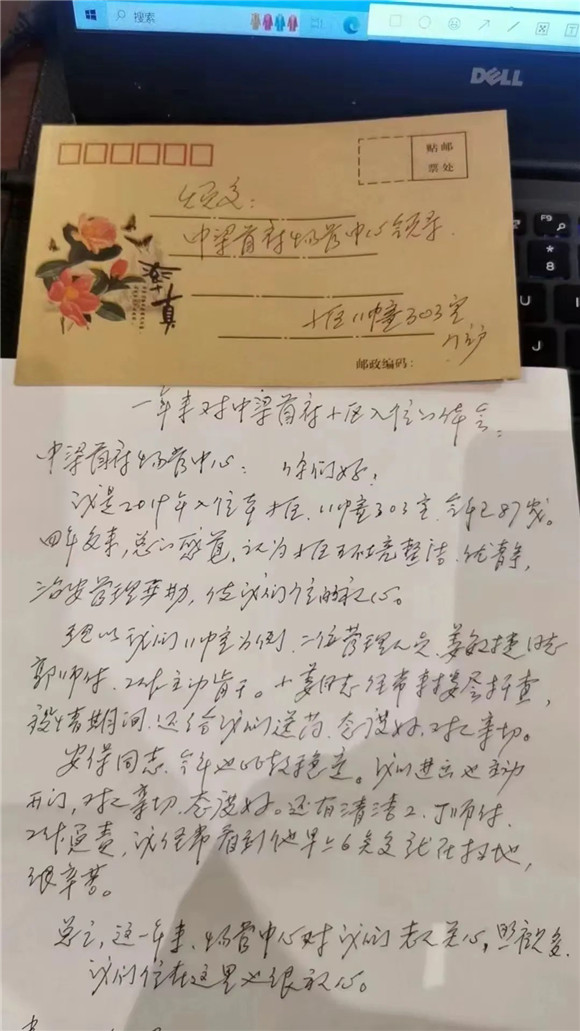 搜索
DELL
贴邮
票处
烦交:
中梁首府物管中心领导.
小区11幢303室
邮政编码:
F9
8
U
I
J
一年来对中梁首府小区入住的体会:
中梁首府物管中心: 你们好!
我是2019年入住本小区.11幢303室.今年已87岁。
四年多来,总的感觉,认为小区环境整洁.优静,
治安管理 使我们住的放心。
现以我们11幢室为例.二位管理人员.姜敏捷同志
郭师付.工作主动肯干。小姜同志经常来楼层检查,
疫情期间.还给我们送药.态度好.对人亲切。
安保同志.今年也比较稳定。我们进出也主动
开门,对人亲切.态度好。还有清洁工.丁师付.
工作负责,我经常看到他早上6点多就在扫地,
很辛苦。
总之,这一年来.物管中心对我们老人关心,照顾多.
我们住在这里也很放心。